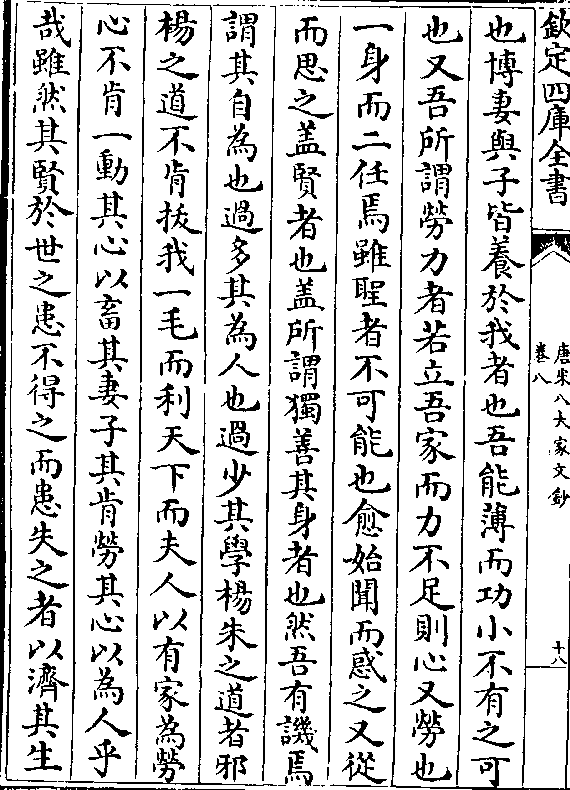 欽定四庫全書
唐宋八大家文鈔
卷八
十八
也博妻與子皆養於我者也吾能薄而功小不有之可
也又吾所謂勞力者若立吾家而力不足則心又勞也
一身而二任焉雖聖者不可能也愈始聞而惑之又從
而思之盖賢者也盖所謂獨善其身者也然吾有譏焉
謂其自為也過多其為人也過少其學楊朱之道者邪
楊之道不肯拔我一毛而利天下而夫人以有家為勞
心不肯一動其心以畜其妻子其肯勞其心以為人乎
哉雖然其賢於世之患不得之而患失之者以濟其生